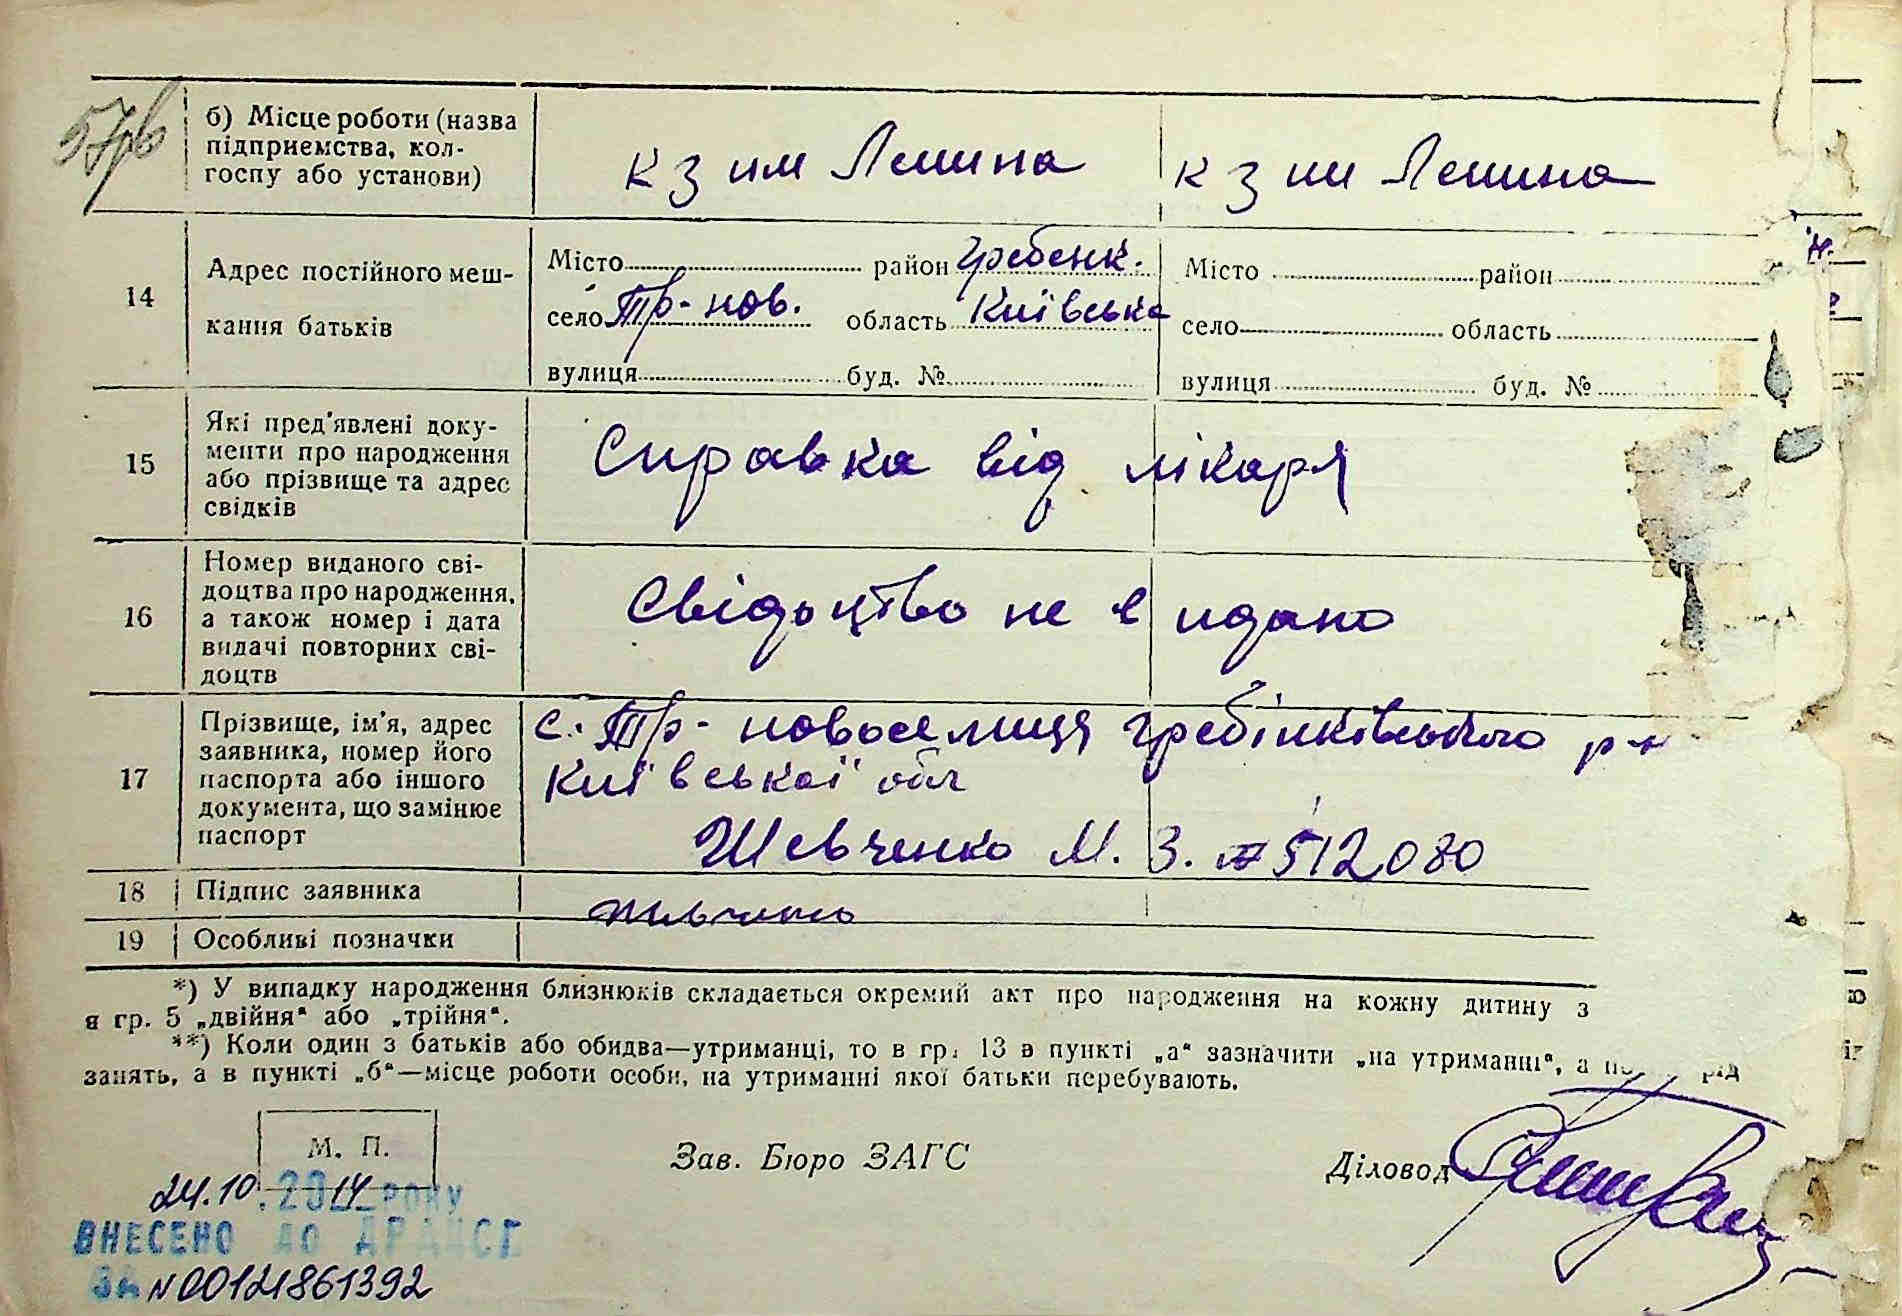 57рв
б) Місце роботи (назва
підприємства, кол-
госпу або установи)
к з им Ленина
к з им Ленина
14
Адрес постійного меш-
кання батьків
Місто район гребенк.
село Тр-нов. область Київська
вулиця буд. №
Місто район
село область
вулиця буд. №
15
Які пред'явлені доку-
менти про народження
або прізвище та адрес
свідків
Справка від лікаря
16
Номер виданого сві-
доцтва про народження,
а також номер і дата
видачі повторних сві-
доцтв
Свідоцтво не видано
17
Прізвище, ім'я, адрес
заявника, номер його
паспорта або іншого
документа, що замінює
паспорт
с. Тр-новоселиця гребінківського р-н
Київської обл
Шевченко М. З. 512080
18
Підпис заявника
Шевченко
19
Особливі позначки
*) У випадку народження близнюків складається окремий акт про народження на кожну дитину з
в гр. 5 „двійня“ або „трійня“.
**) Коли один з батьків або обидва—утриманці, то в гр. 13 в пункті „а“ зазначити „на утриманні“, а рід
занять, а в пункті „б“—місце роботи особи, на утриманні якої батьки перебувають.
М. П.
Зав. Бюро ЗАГС
Діловод
24.10.2014 РОКУ
ВНЕСЕНО ДО ДРАЦСГ
ЗА N00121861392